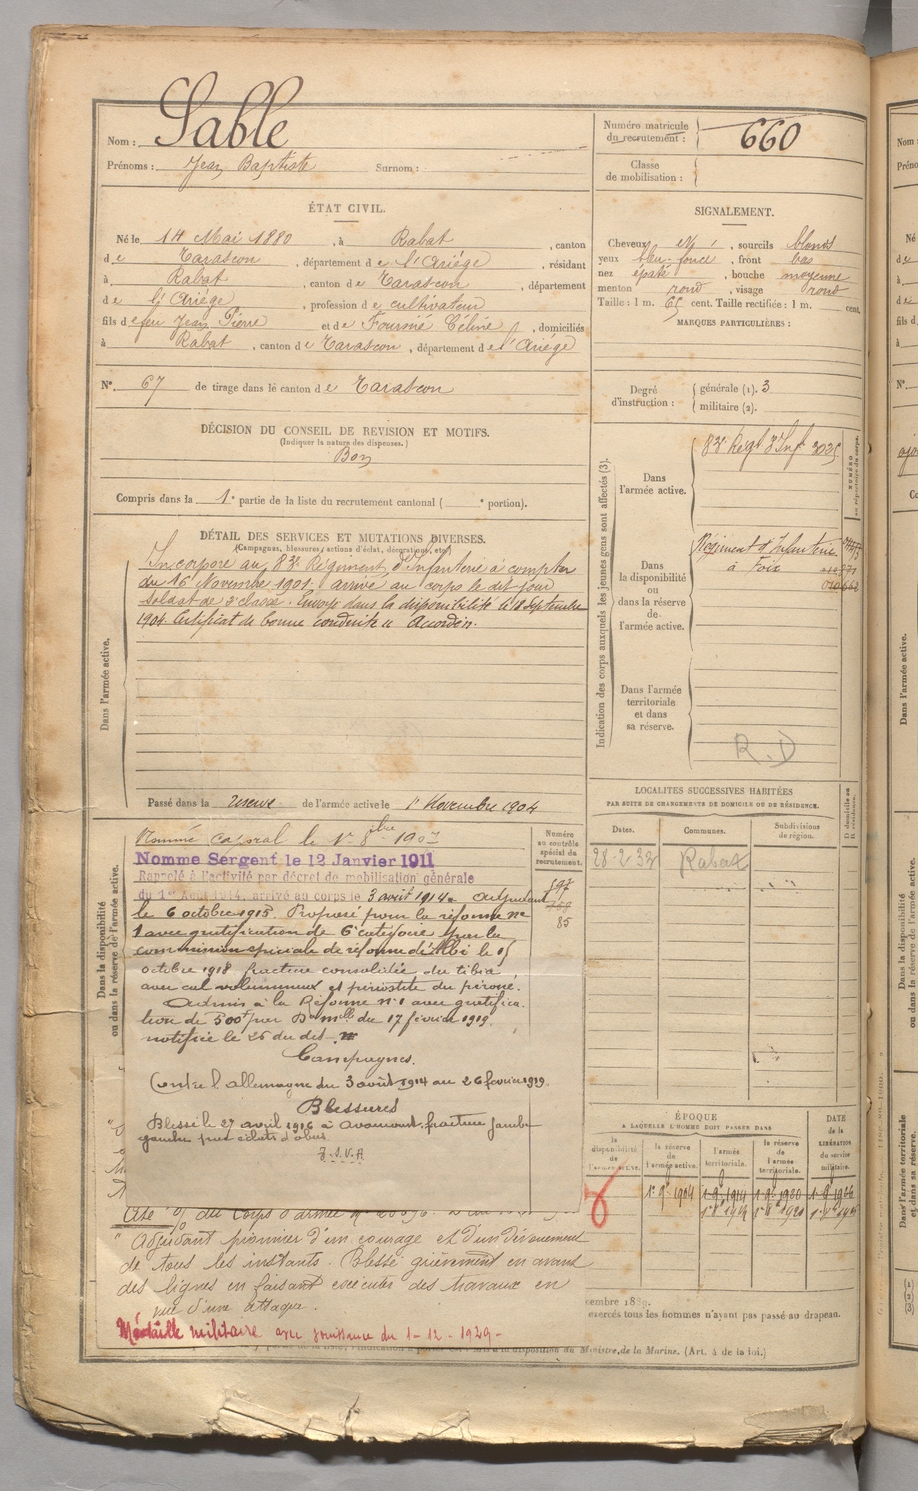 Nom : Sable
Prénoms : Jean Baptiste Surnom :
Numéro matricule
du recrutement : 660
Classe
de mobilisation :
ÉTAT CIVIL.
Né le 14 Mai 1880, à Rabat, canton
de Tarascon, département de l'Ariège, résidant
à Rabat, canton de Tarascon, département
de l'Ariège, profession de cultivateur
fils de feu Jean Pierre et de Fourmé Céline, domiciliés
à Rabat, canton de Tarascon, département de l'Ariège
N° 67 de tirage dans le canton de Tarascon
SIGNALEMENT.
Cheveux , sourcils blonds
yeux bleu foncé, front bas
nez épaté, bouche moyenne
menton rond, visage rond
Taille : 1 m. 65 cent. Taille rectifiée : 1 m. cent.
MARQUES PARTICULIÈRES :
Degré
d'instruction :
générale (1). 3
militaire (2).
DÉCISION DU CONSEIL DE RÉVISION ET MOTIFS.
(Indiquer la nature des dispenses.)
Bon
Compris dans la 1e partie de la liste du recrutement cantonal ( e portion).
DÉTAIL DES SERVICES ET MUTATIONS DIVERSES.
(Campagnes, blessures, actions d'éclat, décorations, etc.)
Dans l'armée active.
Incorporé au 83e Régiment d'Infanterie à compter
du 16 Novembre 1901. arrivé au corps le dit jour
soldat de 2e classe. Envoyé dans la disponibilité le 18 Septembre
1904 Certificat de bonne conduite Accordé.
Passé dans la réserve de l'armée active le 1er Novembre 1904
Indication des corps auxquels les jeunes gens sont affectés (3).
NUMÉRO
Dans
l'armée active.
83e Regt d'Inf
Dans
la disponibilité
ou
dans la réserve
de
l'armée active.
Régiment d'Infanterie
à Foix
Dans l'armée
territoriale
et dans
sa réserve.
R.D
LOCALITÉS SUCCESSIVES HABITÉES
PAR SUITE DE CHANGEMENTS DE DOMICILE OU DE RÉSIDENCE.
Dates. Communes. Subdivisions
de région.
28-2-32 Rabat
Dans la disponibilité
ou dans la réserve de l'armée active.
Numéro
au contrôle
spécial du
recrutement.
85
Nommé caporal le 1er 8bre 1907
Nommé Sergent le 12 Janvier 1911
Rappelé à l'activité par décret de mobilisation générale
du 1er Août 1914, arrivé au corps le 3 août 1914. adjudant
le 6 octobre 1915. Proposé pour la réforme n°
1 avec gratification de 6e catégorie par la
commission spéciale de réforme d'Albi le 15
octobre 1918 fracture consolidée du tibia
avec cal volumineux et périostite du péroné.
Admis à la Réforme n° 1 avec gratifica
tion de 300f par Don mlle du 17 février 1919.
notifiée le 26 du dit
Campagnes.
Contre l'allemagne du 3 août 1914 au 26 février 1919.
Blessures
Blessé le 27 avril 1916 à Avocourt. fracture jambe
gambe par éclats d'obus
Cité % du corps d'armée
" Adjudant pionnier d'un courage et d'un dévouement
de tous les instants. Blessé grièvement en avant
des lignes en faisant exécuter des travaux en
vue d'une attaque.
Médaille militaire avec jouissance du 1-12-1929-
ÉPOQUE
À LAQUELLE L'HOMME DOIT PASSER DANS
la
disponibilité
de
l'armée active.
la réserve
de
l'armée active.
l'armée
territoriale.
la réserve
de
l'armée
territoriale.
DATE
de la
LIBÉRATION
du service
militaire.
1er 9bre 1904 1-9-1914 1-9-1920 1-9-1926
exercés tous les hommes n'ayant pas passé au drapeau.
à la disposition du Ministre de la Marine. (Art. 4 de la loi.)